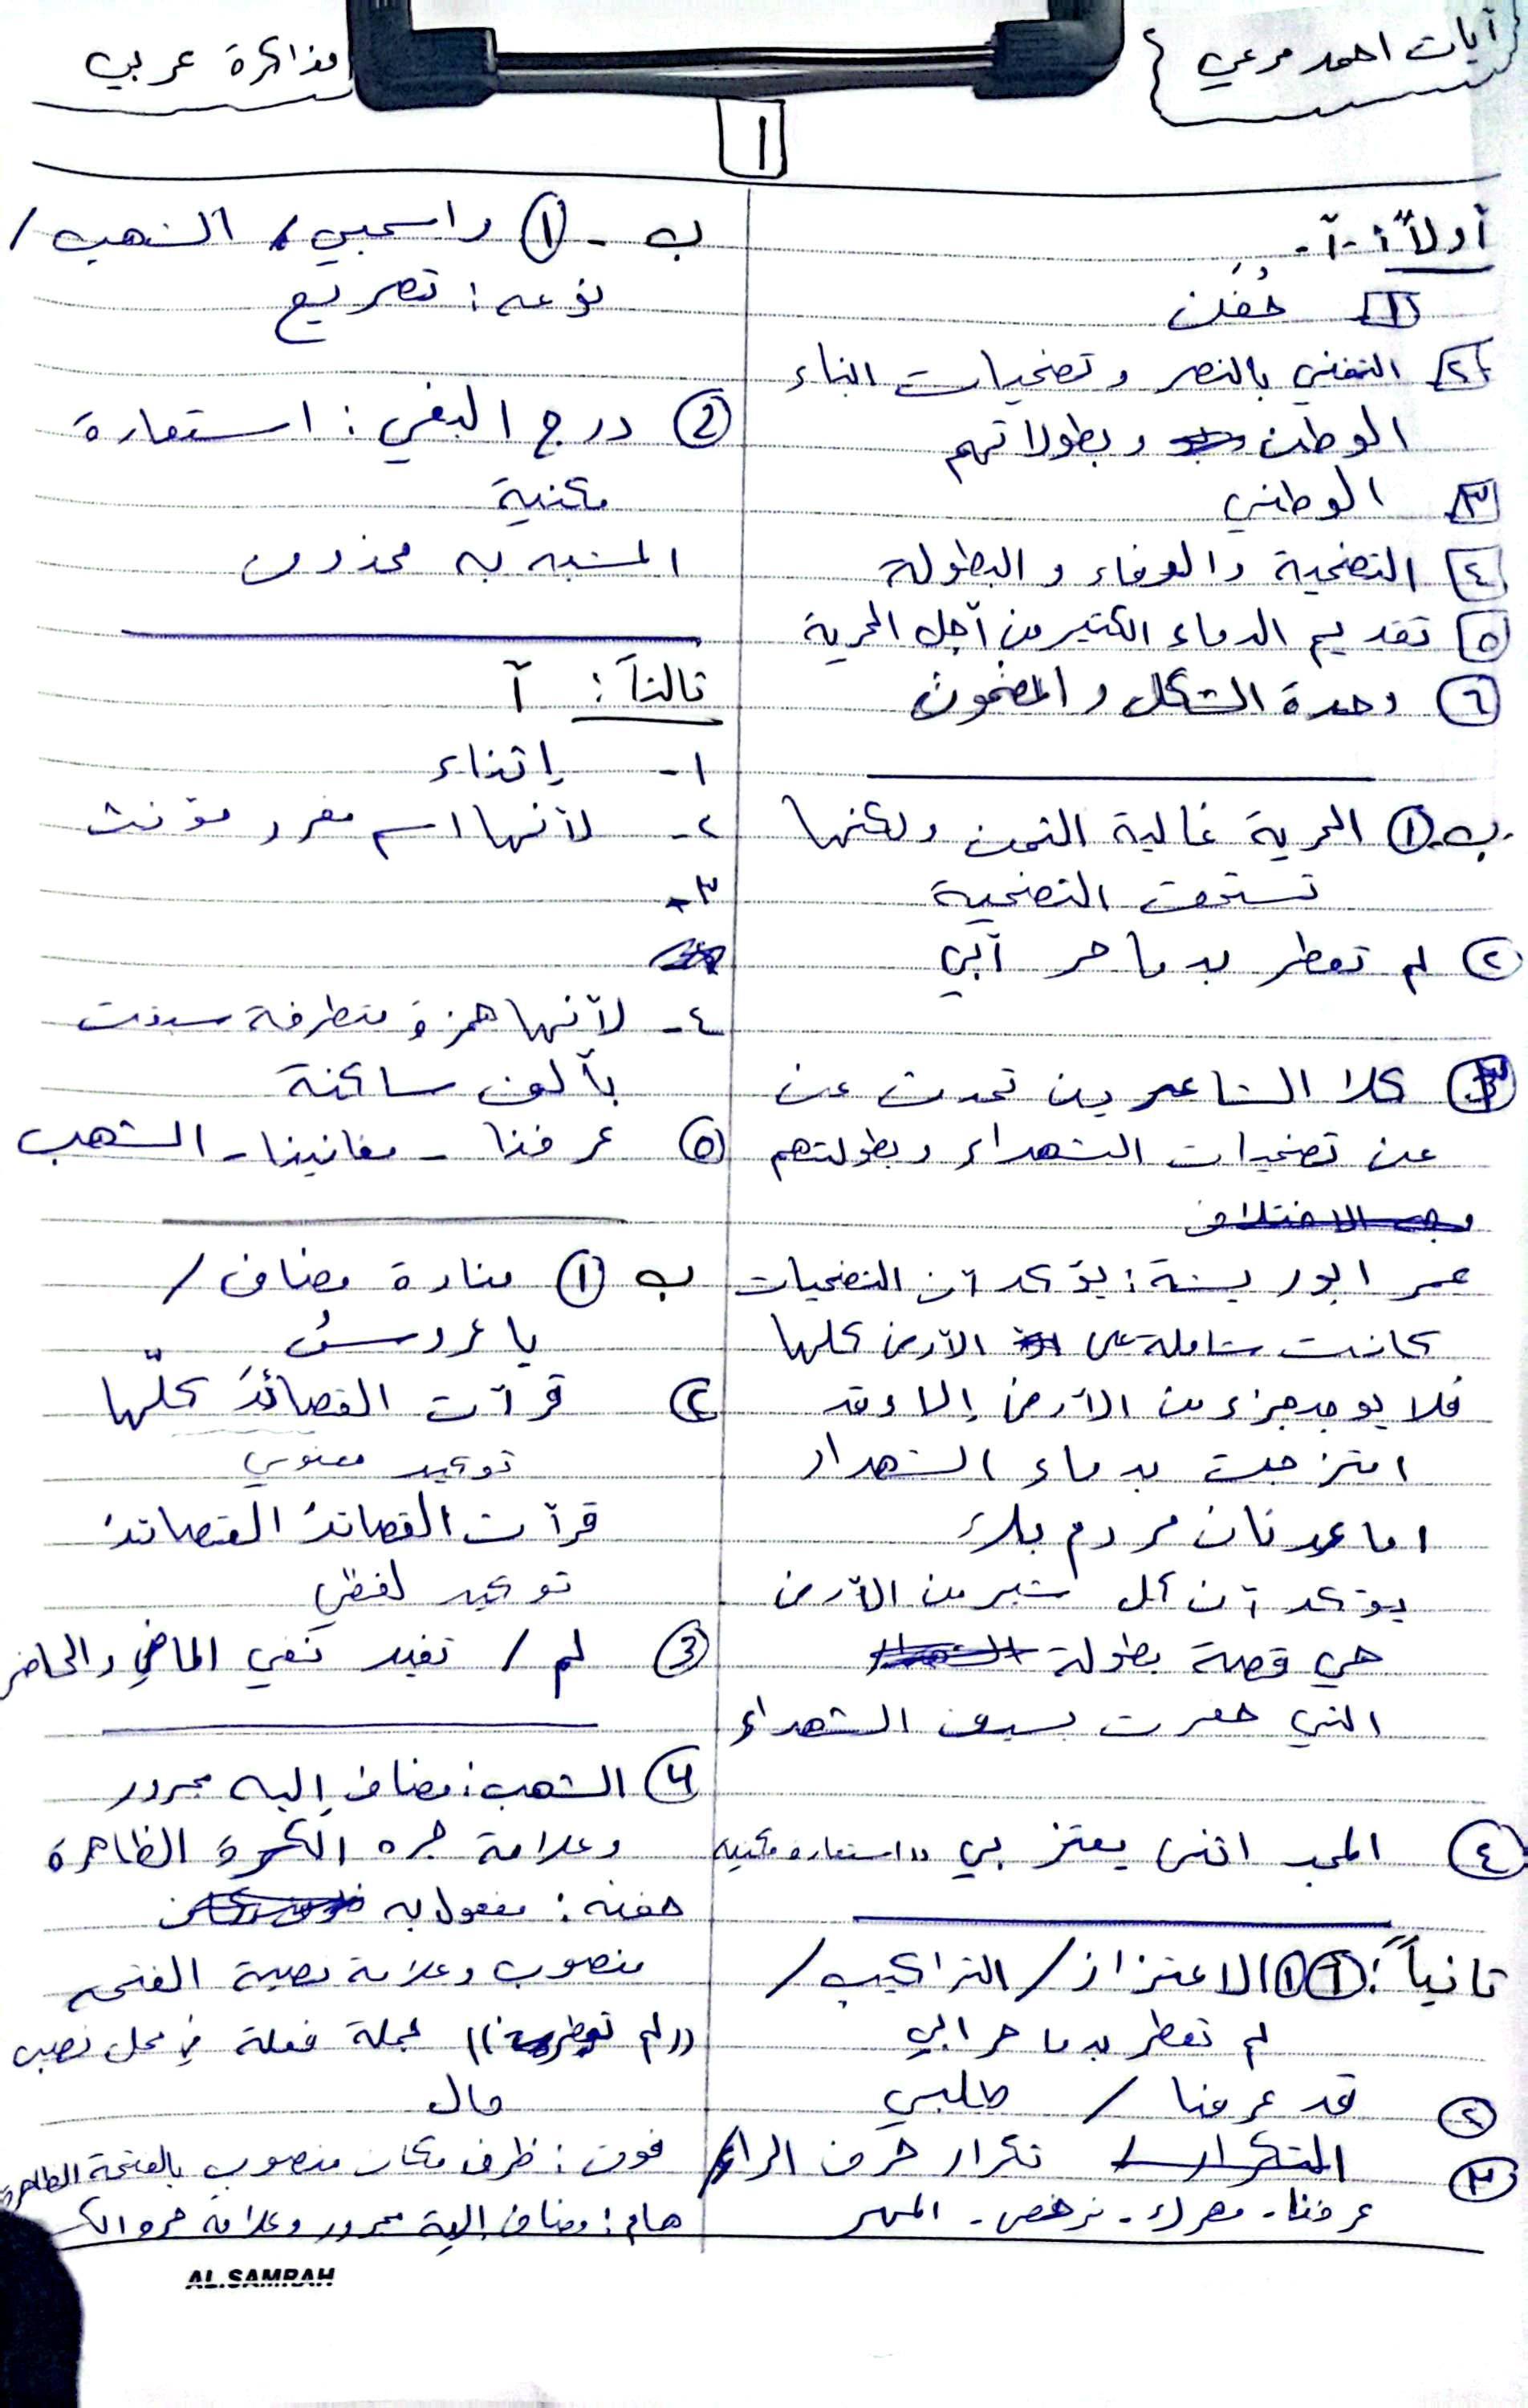 آيات احمد مرعي
مذاكرة عربي
١
أولاً: أ-
١ حُفَن
٢ التغني بالنصر و تضحيات ابناء
الوطن و بطولاتهم
٣ الوطني
٤ التضحية والوفاء و البطولة
٥ تقديم الدماء الكثير من أجل الحرية
٦ وحدة الشكل و المضمون
ب-١ الحرية غالية الثمن ولكنها
تستحق التضحية
٢ لم تعطر بدما حر أبي
٣ كلا الشاعرين تحدث عن
عن تضحيات الشهداء و بطولتهم
وجه الاختلاف
عمر ابو ريشة: يؤكد أن التضحيات
كانت شاملة على الأرض كلها
فلا يوجد جزء من الأرض إلا وقد
امتزجت بدماء الشهداء
اما عدنان مردم بك
يؤكد أن كل شبر من الأرض
هي قصة بطولة
التي حفرت بسيف الشهداء
٤ المجد انثى يعتز بي "استعارة مكنية
ثانياً: أ ١ الاعتزاز / التراكيب /
لم تعطر بدما حر ابي
٢ قد عرفنا / طلبي
٣ التكرار تكرار حرف الراء
عرفنا - مهرك - نرخص - المهر
ب - ١ واسحبي / الشهب /
نوعه: تصريع
2 درج البغي: استعارة
مكنية
المشبه به محذوف
ثالثاً: أ
١- إثناء
٢- لأنها اسم مفرد مؤنث
٣-
٤- لأنها همزة متطرفة سبقت
بألف ساكنة
٥ عرفنا - مغانينا - الشهب
ب ١ منادة مضاف /
يا عروسُ
٢ قرأت القصائدَ كلّها
توكيد معنوي
قرأت القصائدَ القصائدَ
توكيد لفظي
3 لم / تفيد نفي الماضي والحاضر
4 الشهب: مضاف إليه مجرور
وعلامة جره الكسرة الظاهرة
حفنه: مفعول به
منصوب وعلامة نصبه الفتحه
"لم تعطر" جملة فعلة في محل نصب
حال
فوق: ظرف مكان منصوب بالفتحة الظاهرة
هام: مضاف إليه مجرور وعلامة جره
AL.SAMRAH